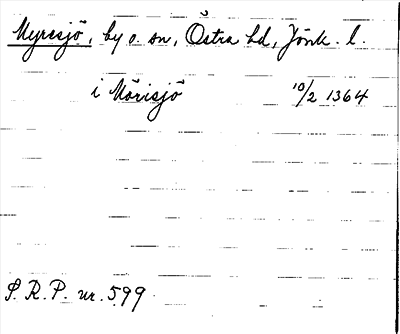 Myresjö, by o. sn, Östra hd, Jönk. l.
i Mörisjö 10/2 1364
S.R.P. nr. 599